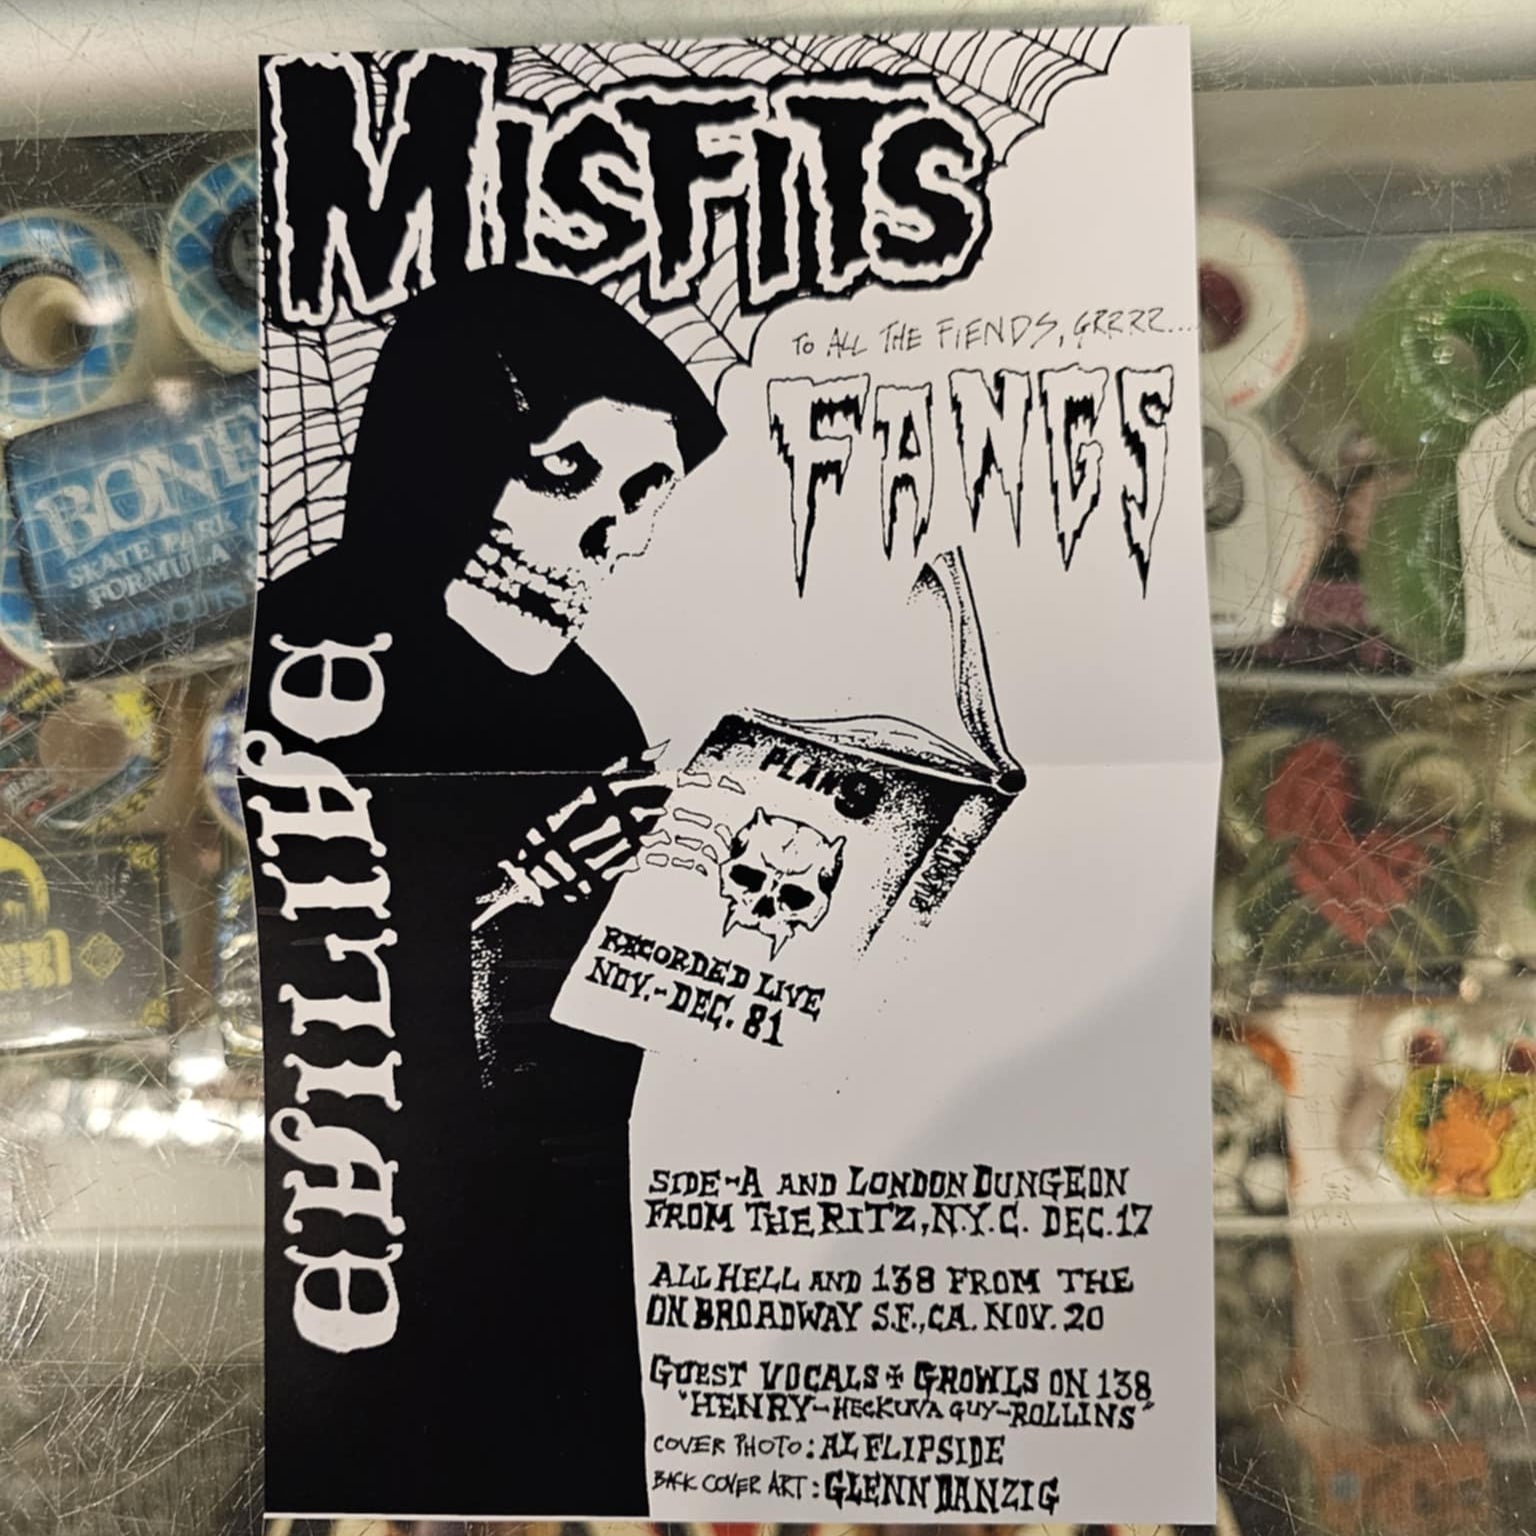 MISFITS
TO ALL THE FIENDS, GRRRR....
FANGS
EVILIVE
PLAN 9
RECORDED LIVE
NOV.-DEC. 81
SIDE-A AND LONDON DUNGEON
FROM THE RITZ, N.Y.C. DEC. 17
ALL HELL AND 138 FROM THE
ON BROADWAY S.F., CA. NOV. 20
GUEST VOCALS + GROWLS ON 138
"HENRY-HECKUVA GUY-ROLLINS"
COVER PHOTO: AL FLIPSIDE
BACK COVER ART: GLENN DANZIG
BONES
SKATE PARK
FORMULA